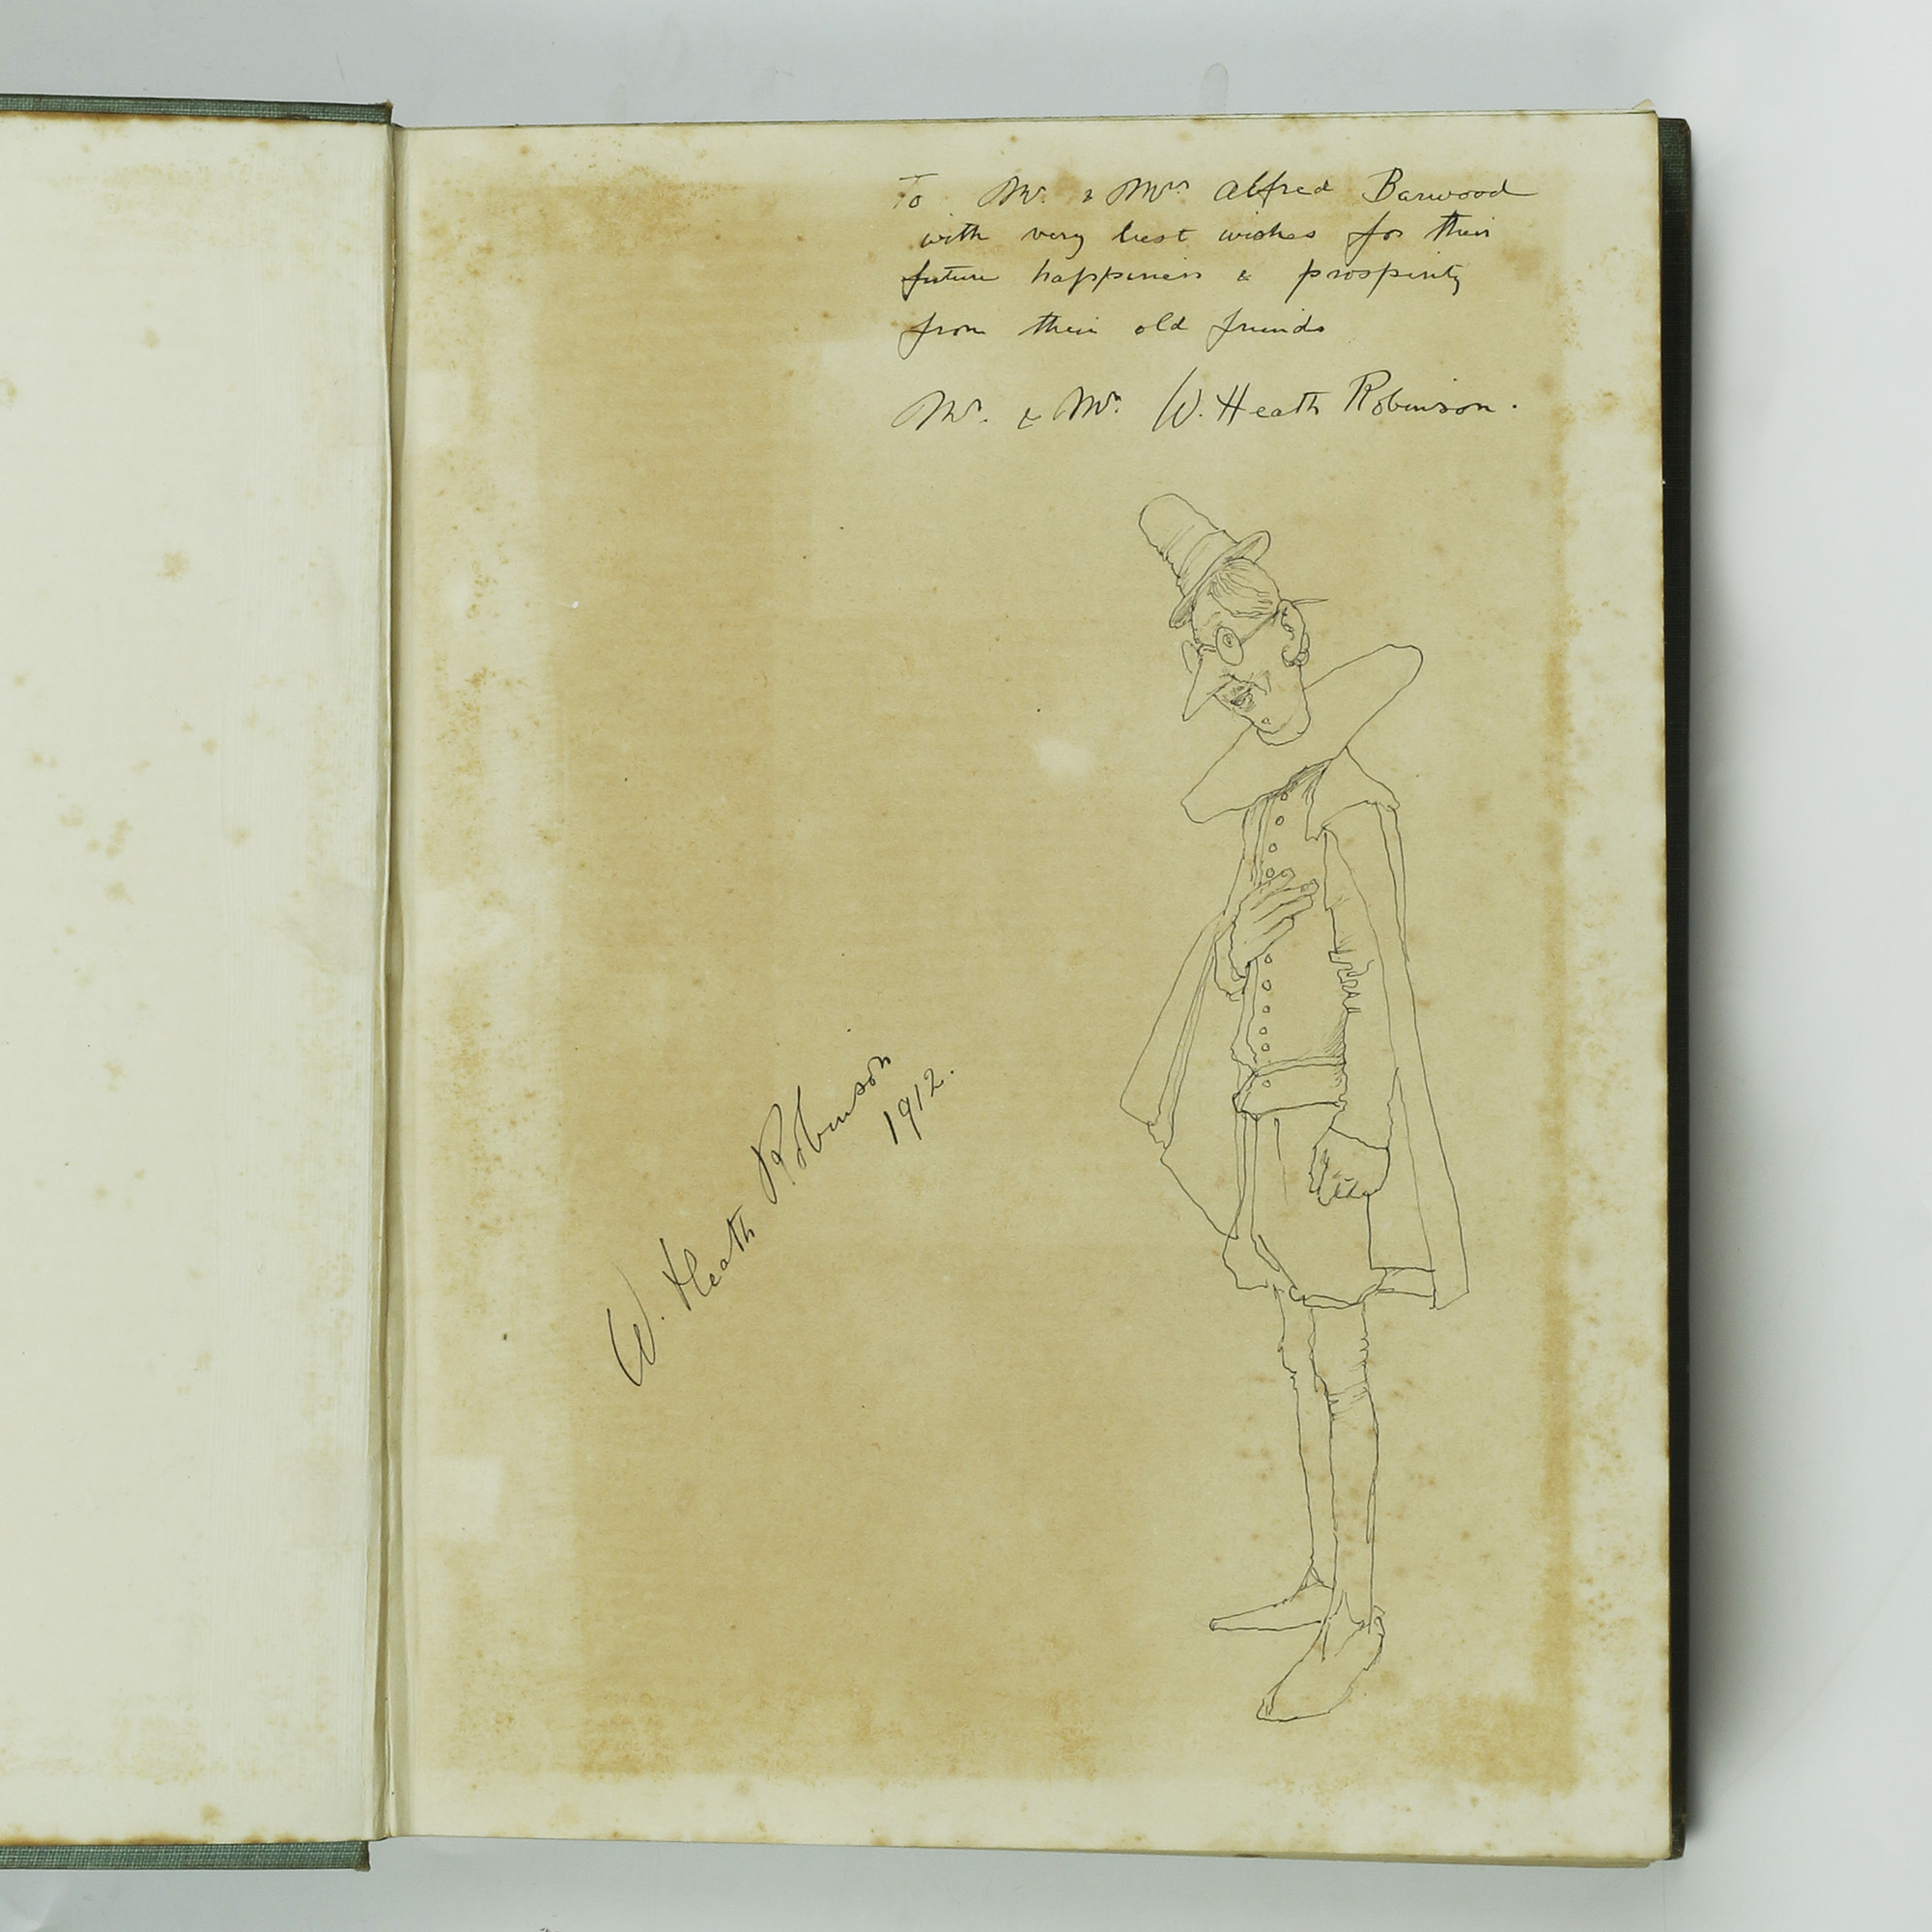 To Mr. & Mrs Alfred Barwood
with very best wishes for their
future happiness & prosperity
from their old friends
Mr. & Mrs. W. Heath Robinson.
W. Heath Robinson
1912.